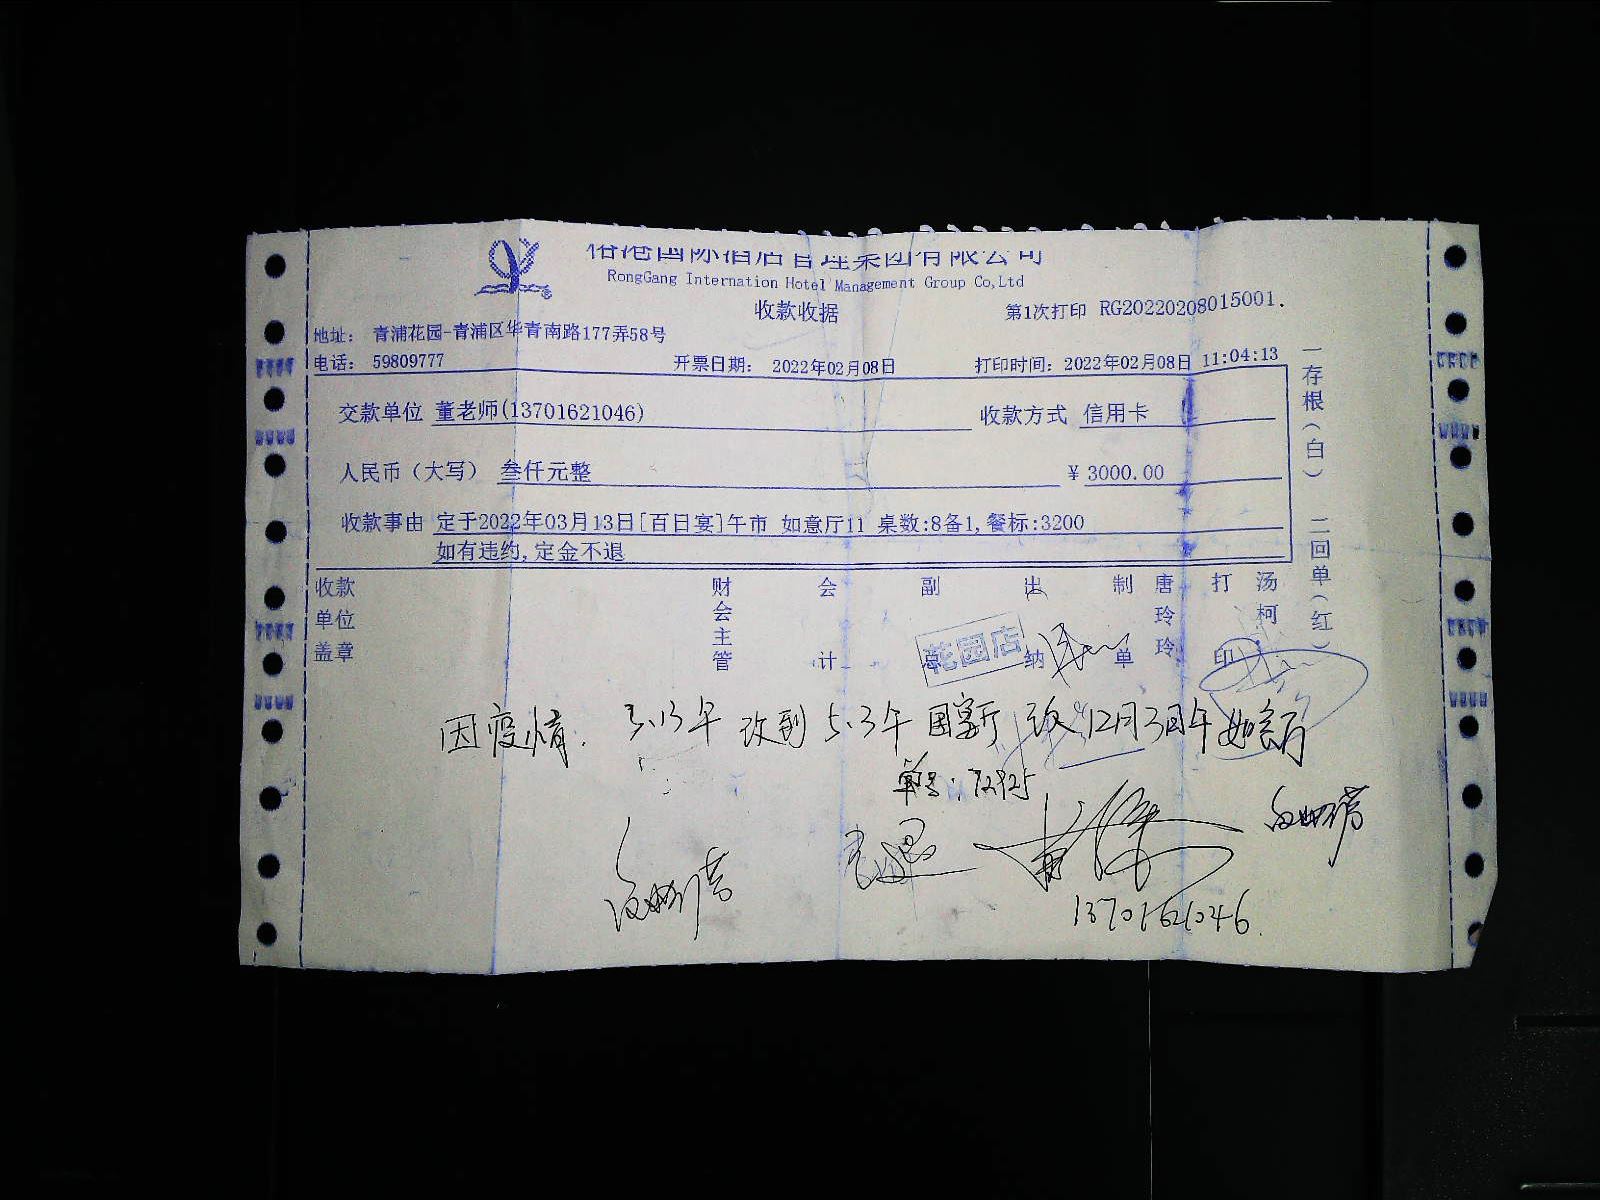 国际酒店管理集团有限公司
RongGang Internation Hotel Management Group Co,Ltd
收款收据
第1次打印 RG20220208015001.
地址： 青浦花园-青浦区华青南路177弄58号
电话： 59809777 开票日期： 2022年02月08日 打印时间：2022年02月08日 11:04:13
交款单位 董老师(13701621046) 收款方式 信用卡
人民币（大写） 叁仟元整 ¥ 3000.00
收款事由 定于2022年03月13日[百日宴]午市 如意厅11 桌数:8备1,餐标:3200
如有违约,定金不退
一存根（白） 二回单（红）
收款单位盖章 财会主管 会计 副总 出纳 制单 唐玲玲 打印 汤柯
花园店
因疫情. 3.13午 改到 5.3午 国宴厅 改 12月3日午 如意厅
单号：72925
13701621046.